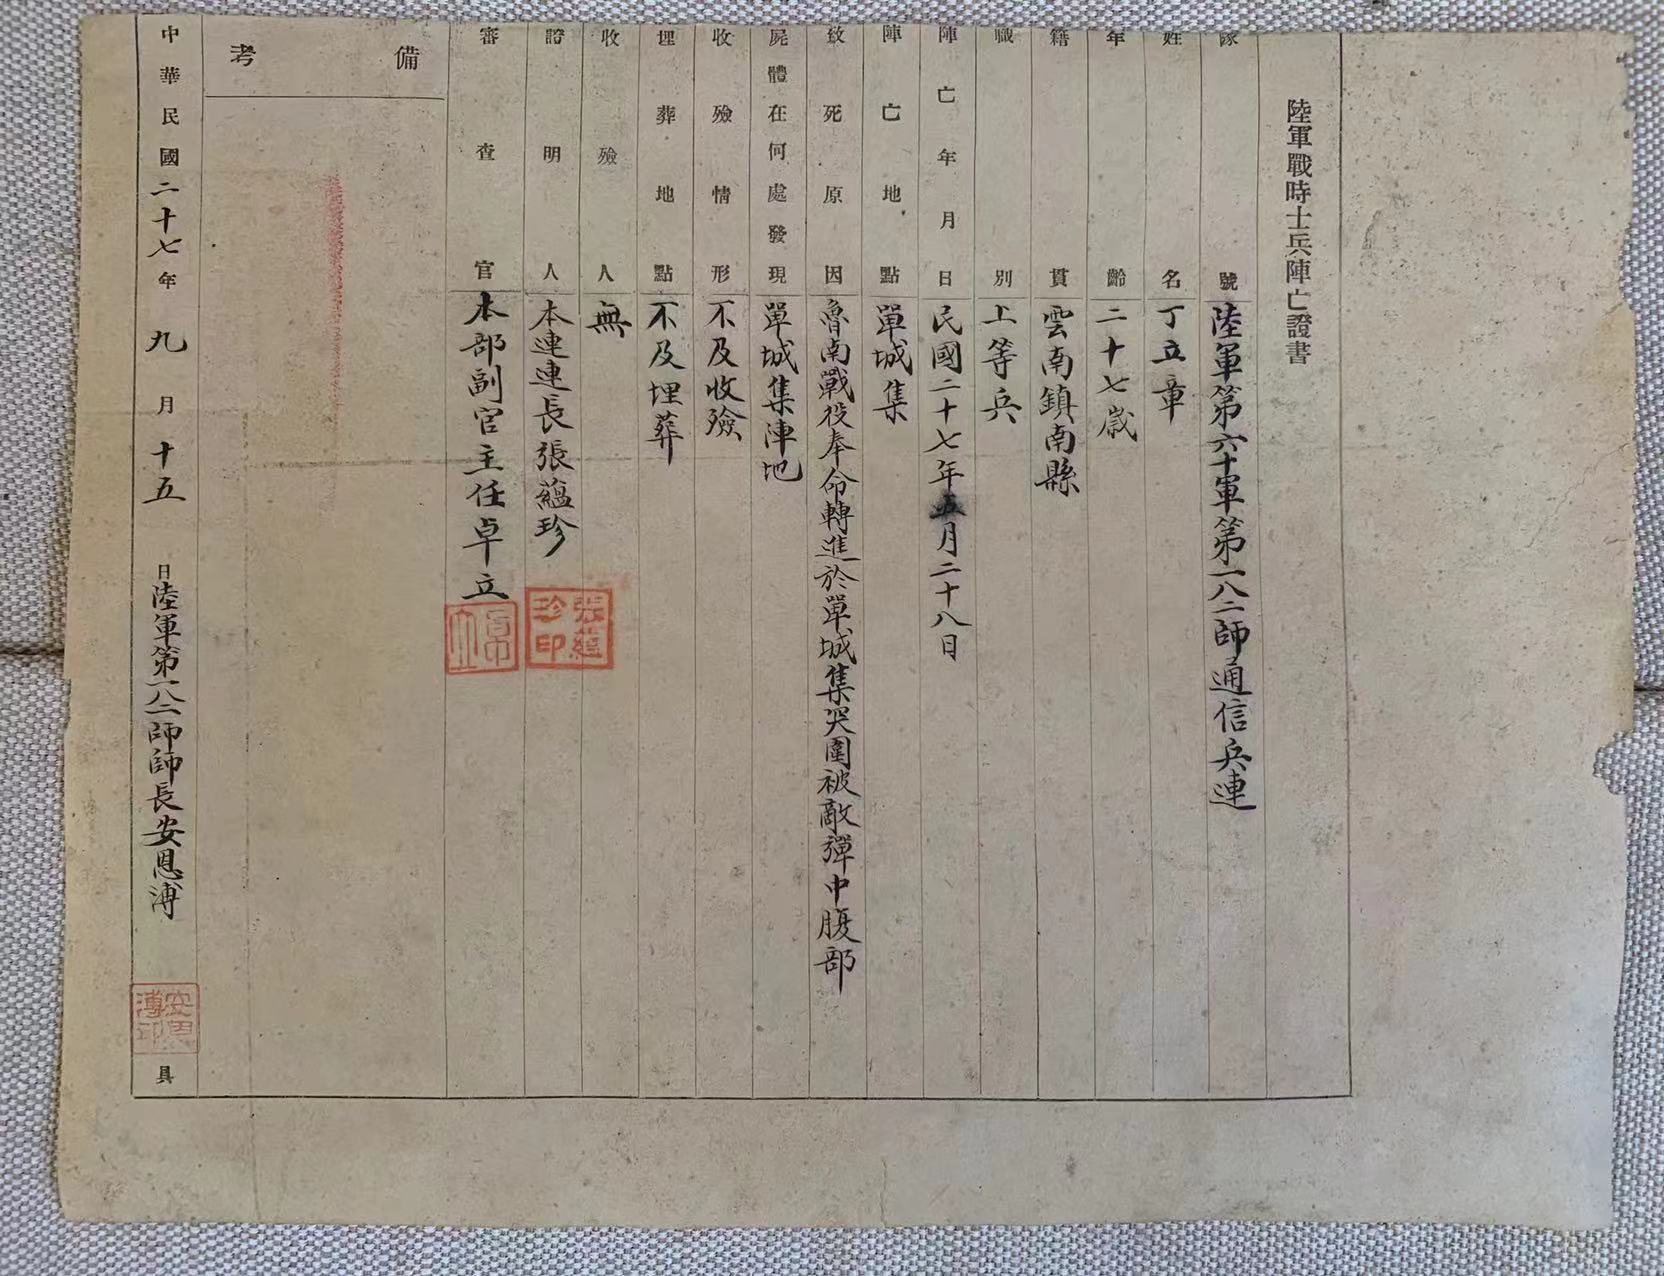 陸軍戰時士兵陣亡證書
隊號 陸軍第六十軍第一八二師通信兵連
姓名 丁立章
年齡 二十七歲
籍貫 雲南鎮南縣
職別 上等兵
陣亡年月日 民國二十七年五月二十八日
陣亡地點 單城集
致死原因 魯南戰役奉命轉進於單城集突圍被敵彈中腹部
屍體在何處發現 單城集陣地
收殮情形 不及收殮
埋葬地點 不及埋葬
收殮人 無
證明人 本連連長張蘊珍 張蘊珍印
審查官 本部副官主任卓立
備考
中華民國二十七年九月十五日陸軍第一八二師師長安恩溥 安恩溥印 具